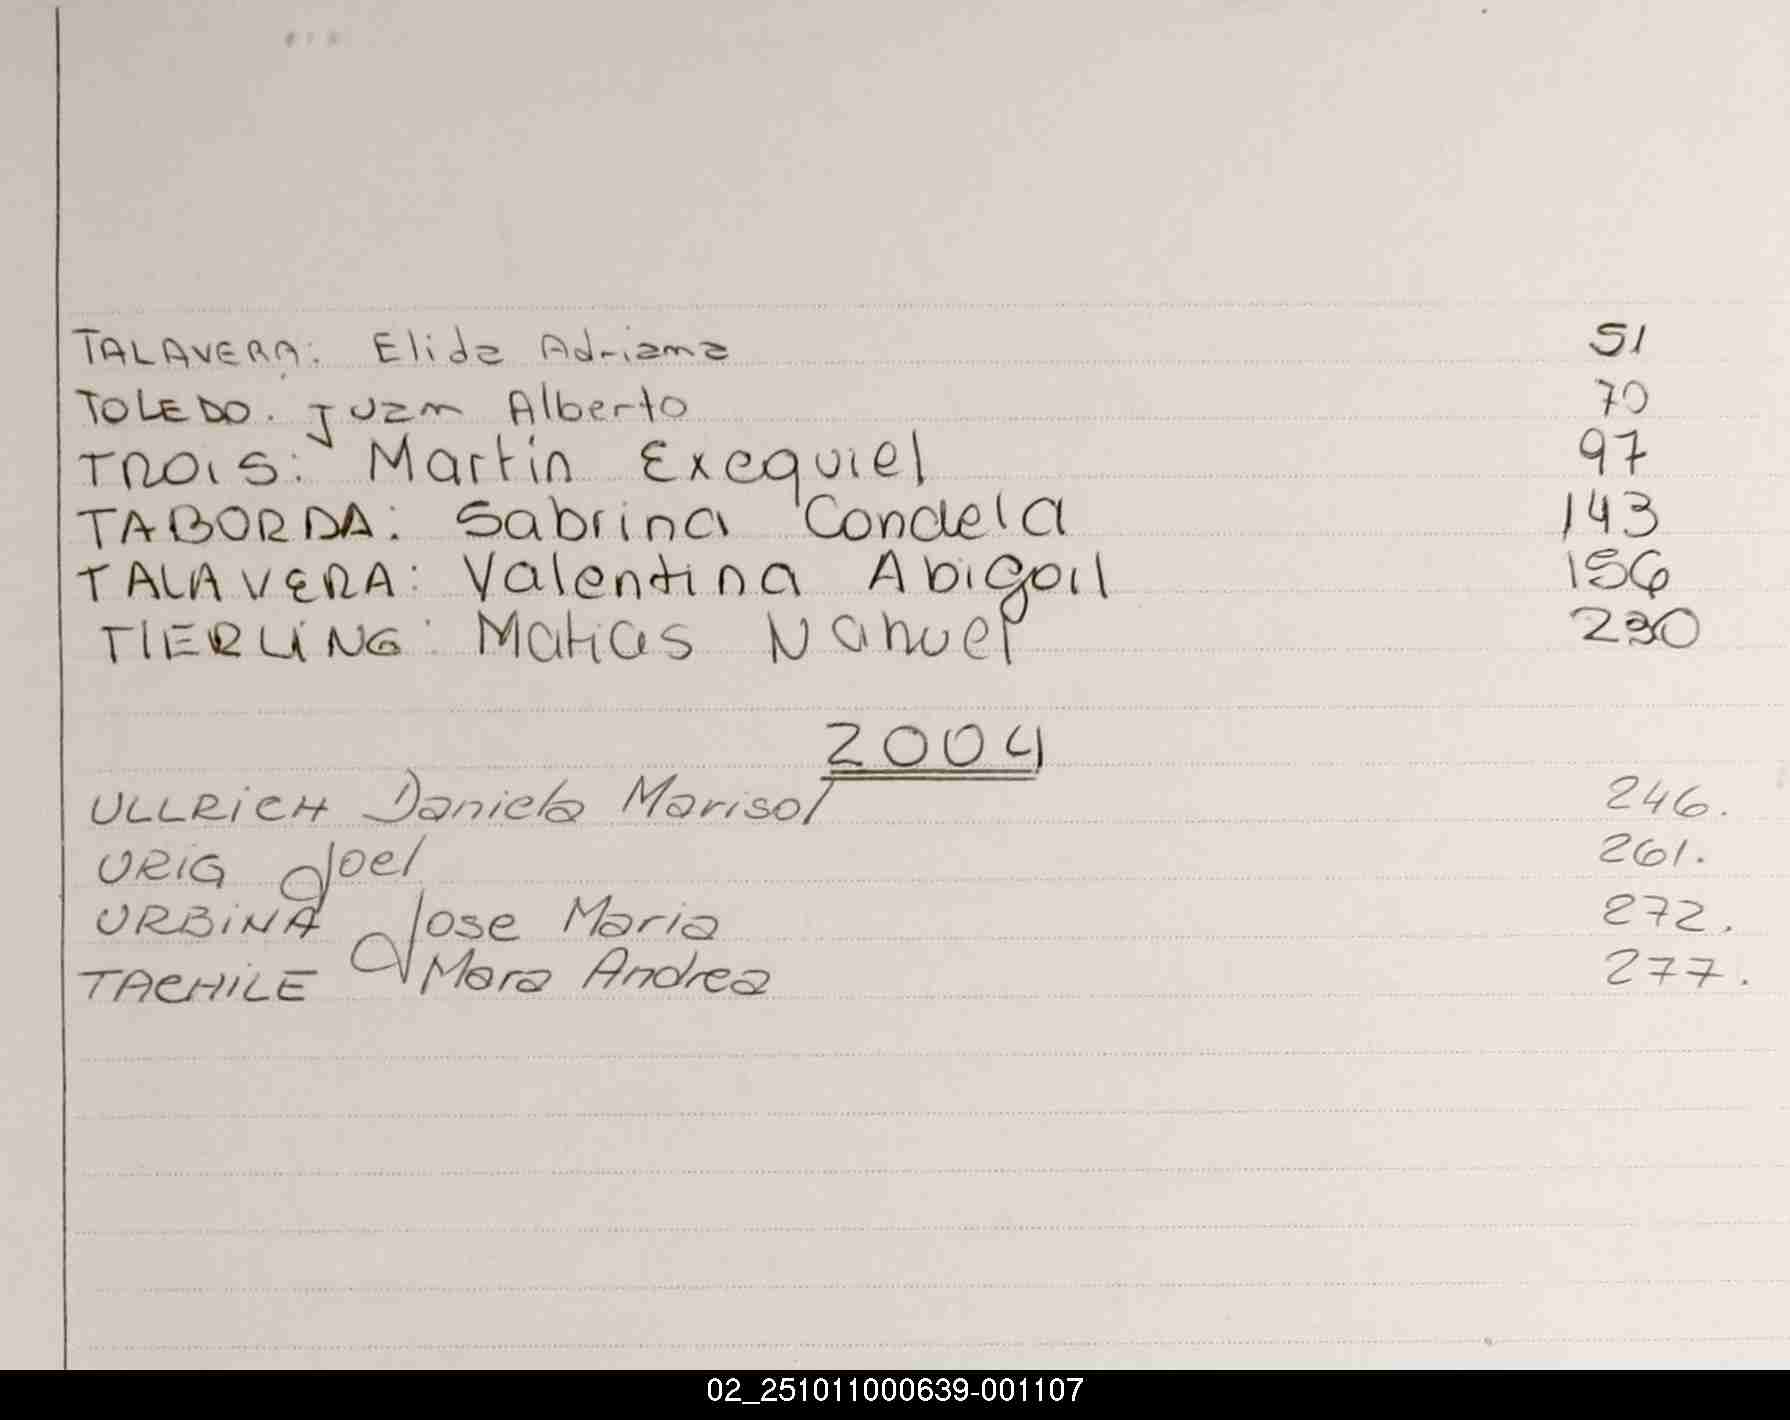 TALAVERA: Elida Adriana 51
TOLEDO. Juan Alberto 70
TROIS: Martin Exequiel 97
TABORDA: Sabrina Candela 143
TALAVERA: Valentina Abigail 156
TIERLING: Matias Nahuel 230
2004
ULLRICH Daniela Marisol 246.
URIG Joel 261.
URBINA Jose Maria 272.
TACHILE Mara Andrea 277.
02_251011000639-001107